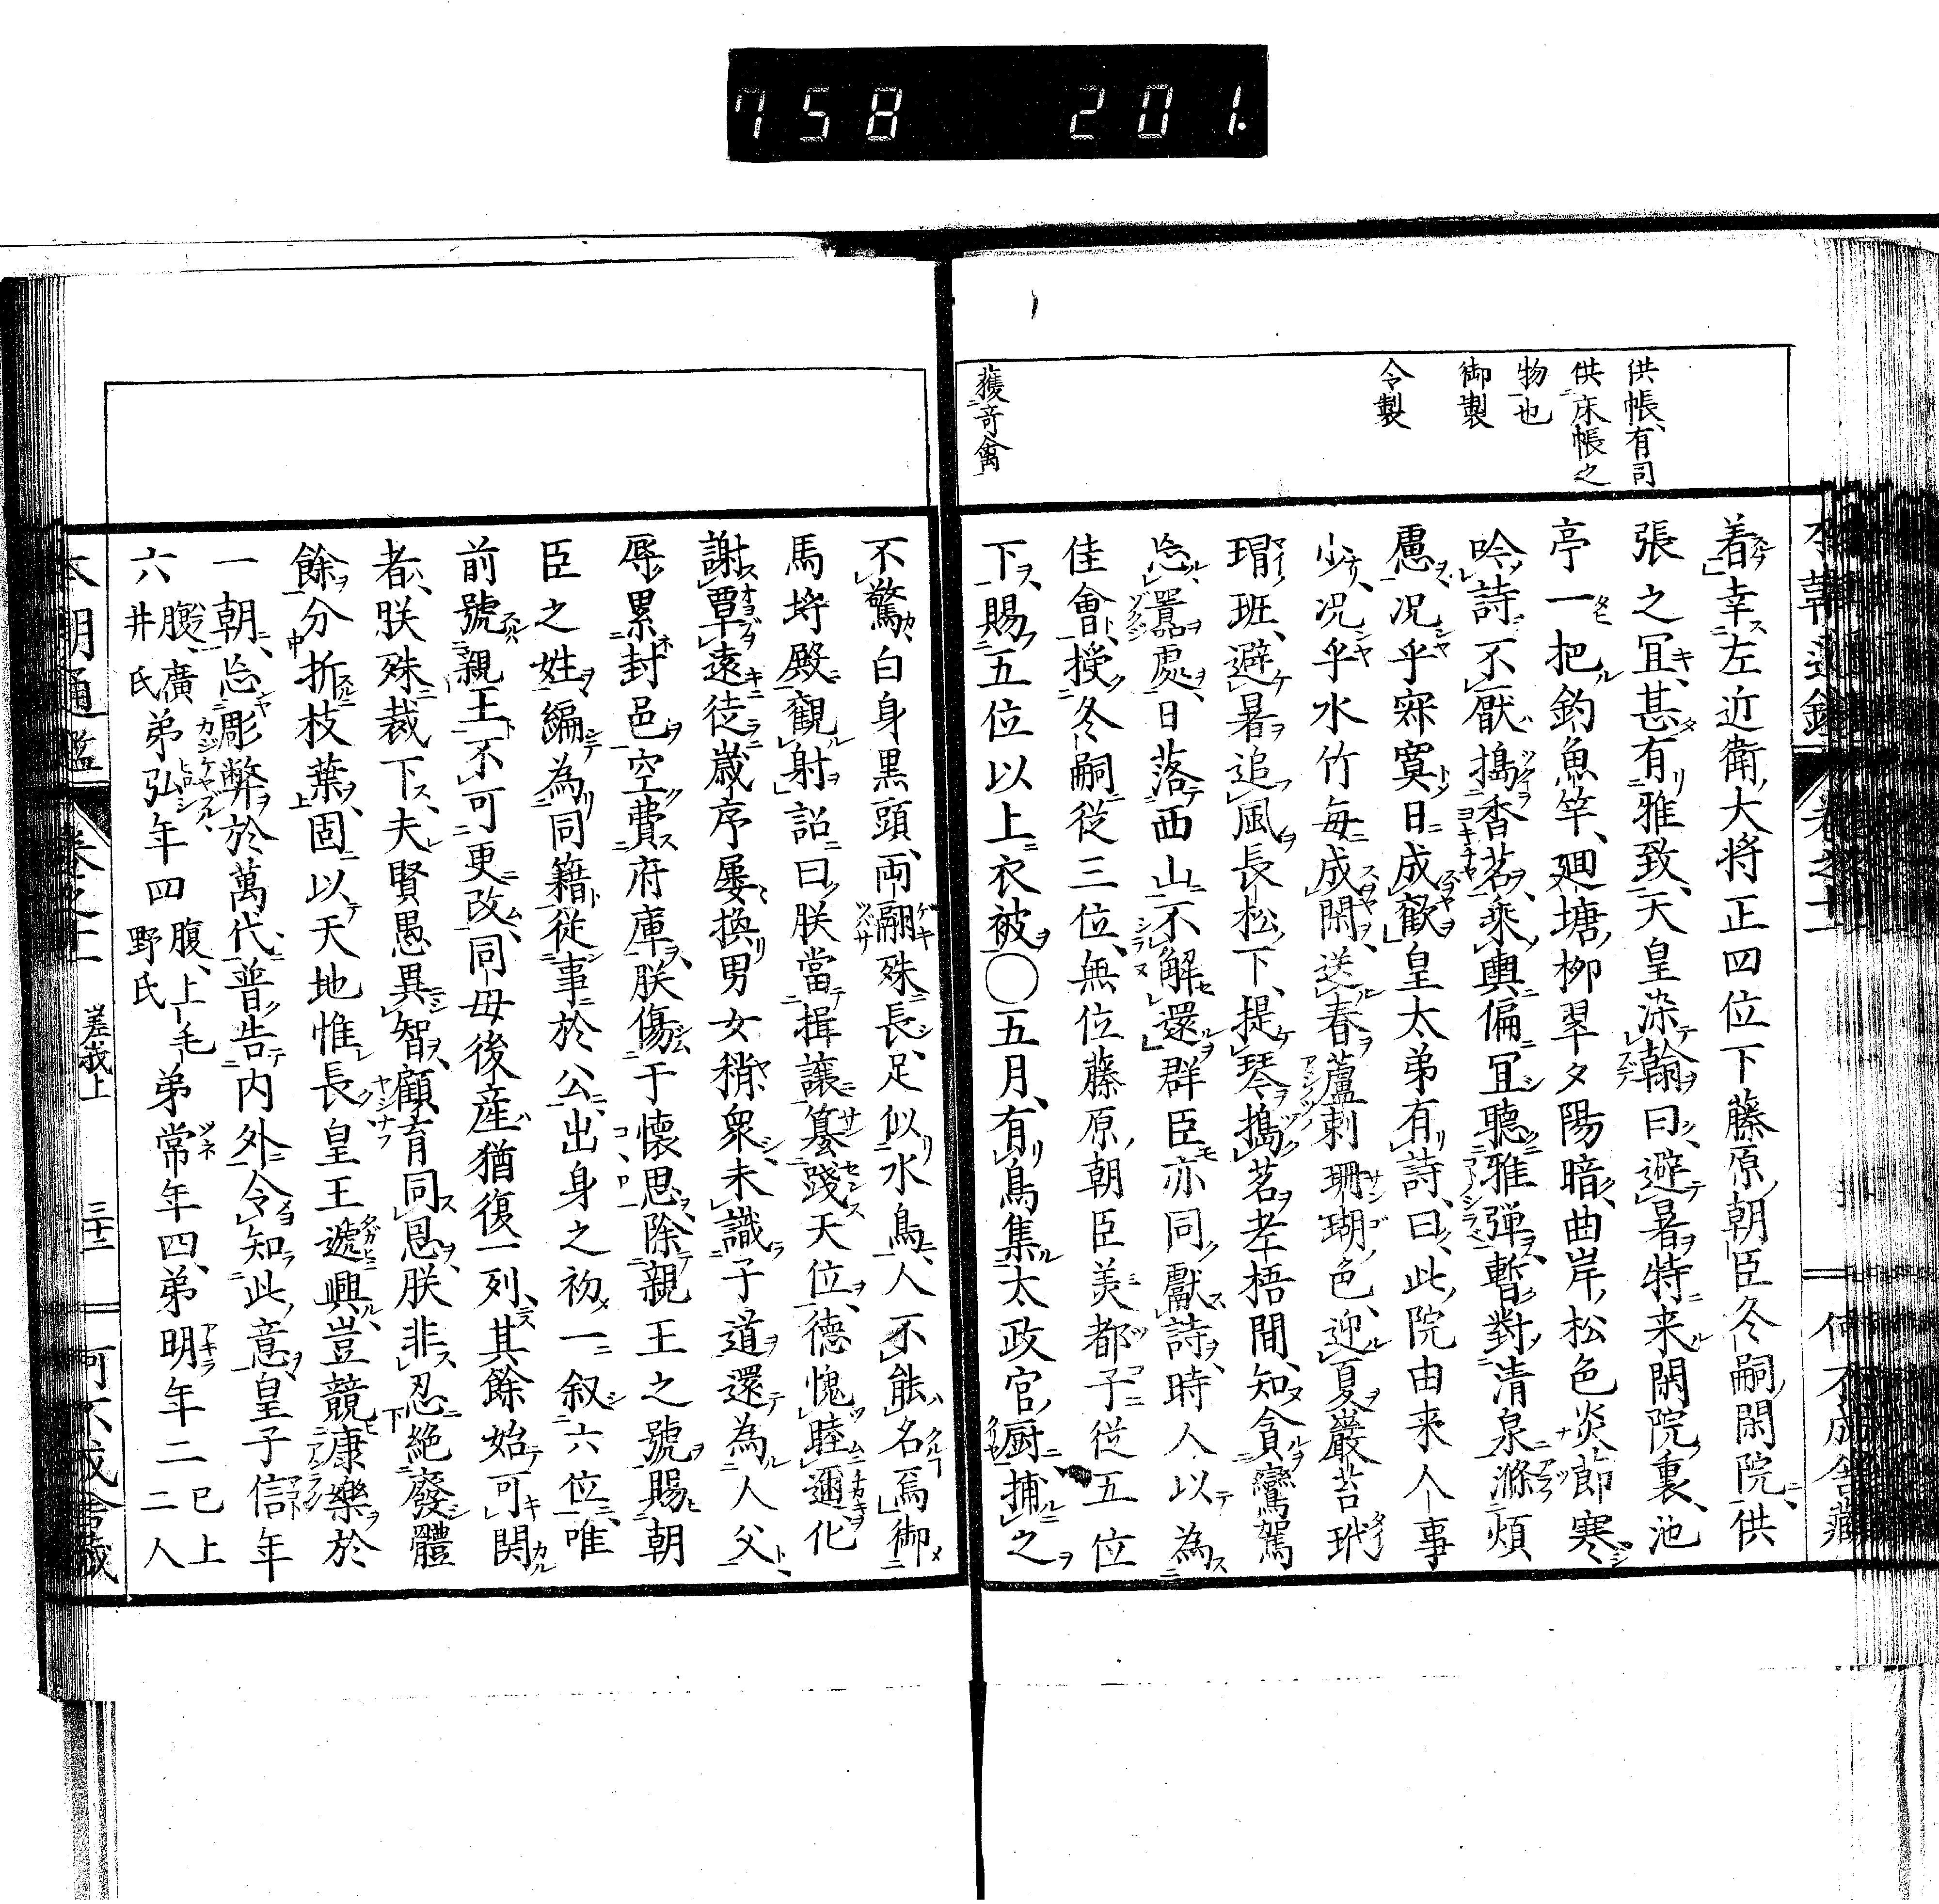 758 201.
供帳、有司
供床帳之
物也
御製
令製
獲奇禽
着幸左近衛大将正四位下藤原朝臣冬嗣閑院供
張之宜、甚有雅致、天皇染翰曰、避暑特来閑院裏、池
亭一把釣魚竿、廻塘柳翠夕陽暗、曲岸松色炎節寒
吟詩不厭搗香茗、乗輿偏宜聴雅弾、暫對清泉滌煩
慮、况乎寂寞日成歡、皇太弟有詩、曰、此院由来人事
少、况乎水竹毎成閑、送春蘆刺珊瑚色、迎夏巌苔玳
瑁班、避暑追風長松下、提琴搗茗老梧間、知貪鸞駕
忘囂處、日落西山不解還、群臣亦同獻詩、時人以為
佳會、授冬嗣従三位、無位藤原朝臣美都子従五位
下、賜五位以上衣被〇五月、有鳥集太政官厨捕之
不驚、白身黒頭、両翮殊長、足似水鳥、人不能名焉御
馬埒殿觀射詔曰朕當揖讓簒踐天位、徳愧睦邇、化
謝覃遠、徒歳序屡換男女稍衆、未識子道還為人父
辱累封邑空費府庫、朕傷于懐思除親王之號賜朝
臣之姓編為同籍、従事於公、出身之初一叙六位、唯
前號親王不可更改、同母後産猶復一列、其餘始可閲
者、朕殊裁下、夫賢愚異智、顧育同恩、朕非忍絶廢體
餘分折枝葉、固以天地惟長皇王遞興、豈競康樂於
一朝、忘彫弊於萬代、普告内外令知此意、皇子信年
六腹、廣井氏弟弘年四腹、上毛野氏弟常年四、弟明年二已上二人
本朝通鑑
巻之十二
嵯峨上
三十二
何不成舎蔵